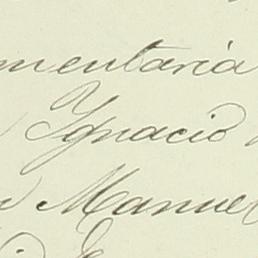 mentaria
Ygnacio
Manuel